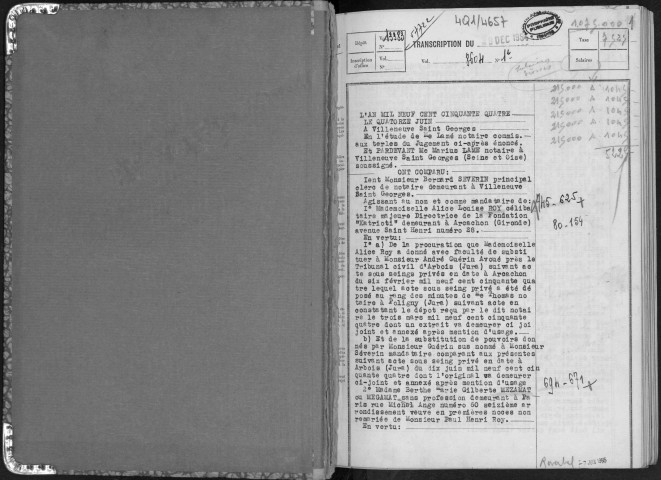 4Q1/4657
Dépôt
TRANSCRIPTION DU DEC 1954
Inscription d'office
Vol.
Taxe
Salaires
215000 à 1045
215000 à 1045
215000 à 1045
L'AN MIL NEUF CENT CINQUANTE QUATRE
LE QUATORZE JUIN
A Villeneuve Saint Georges
En l'étude de Me Lamé notaire commis.
aux termes du Jugement ci-après énoncé.
Et PARDEVANT Me Marius LAME notaire à
Villeneuve Saint Georges (Seine et Oise)
soussigné.
ONT COMPARU:
Ient Monsieur Bernard SEVERIN principal
clerc de notaire demeurant à Villeneuve
Saint Georges.
Agissant au nom et comme mandataire de:
I° Mademoiselle Alice Louise ROY céliba
taire majeure Directrice de la Fondation
demeurant à Arcachon (Gironde)
avenue Saint Henri numéro 28.
En vertu:
I° a) De la procuration que Mademoiselle
Alice Roy a donné avec faculté de substi
tuer à Monsieur André Guérin Avoué près le
Tribunal civil d'Arbois (Jura) suivant ac
te sous seings privés en date à Arcachon
du six février mil neuf cent cinquante qua
tre lequel acte sous seing privé a été dé
posé au rang des minutes de Me Thomas no
taire à Poligny (Jura) suivant acte en
constatant le dépot reçu par le dit notai
re le trois mars mil neuf cent cinquante
quatre dont un extrait va demeurer ci joi
joint et annexé après mention d'usage.
b) Et de la substitution de pouvoirs don
nés par Monsieur Guérin sus nommé à Monsieur
Séverin mandataire comparant aux présentes
suivant acte sous seing privé en date à
Arbois (Jura) du dix juin mil neuf cent cin
quante quatre dont l'original va demeurer
ci-joint et annexé après mention d'usage
2° Madame Berthe Marie Gilberte MEZAMAT
ou MEGAMAT sans profession demeurant à Pa
ris rue Michel Ange numéro 60 seizième ar
rondissement veuve en premières noces non
remariée de Monsieur Paul Henri Roy.
En vertu:
745-625
80-154
694-671